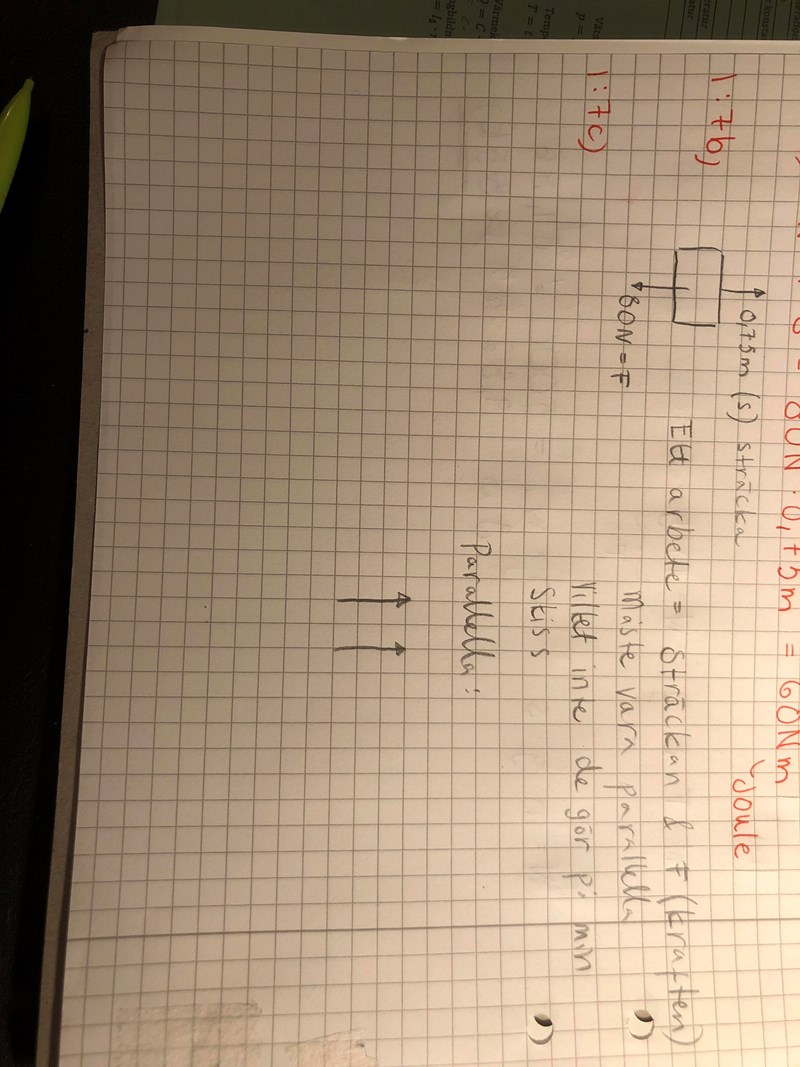 = 80N · 0,75m = 60Nm
Joule
1:7b)
0,75m (s) sträcka
80N = F
Ett arbete = Sträckan & F (kraften)
Måste vara parallella
Vilket inte de gör på min
Skiss
1:7c)
Parallella: